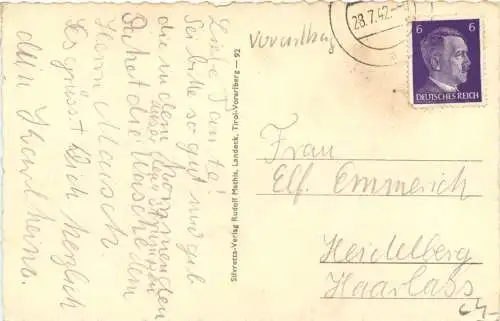 Liebe Tante!
Sei bitte so gut und gib
die in dem kommenden
Paket die Wäsche dem
Herrn Mausch.
Es grüsst Dich herzlich
dein Karlheinz.
Silvretta-Verlag Rudolf Mathis, Landeck, Tirol-Vorarlberg — 92
Vorarlberg
28.7.42.
6 6
DEUTSCHES REICH
Frau
Elf. Emmerich
Heidelberg
Haarlass